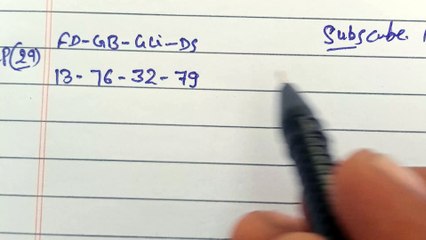 FD-GB-GLi-DS Subscribe
P(29)
13-76-32-79